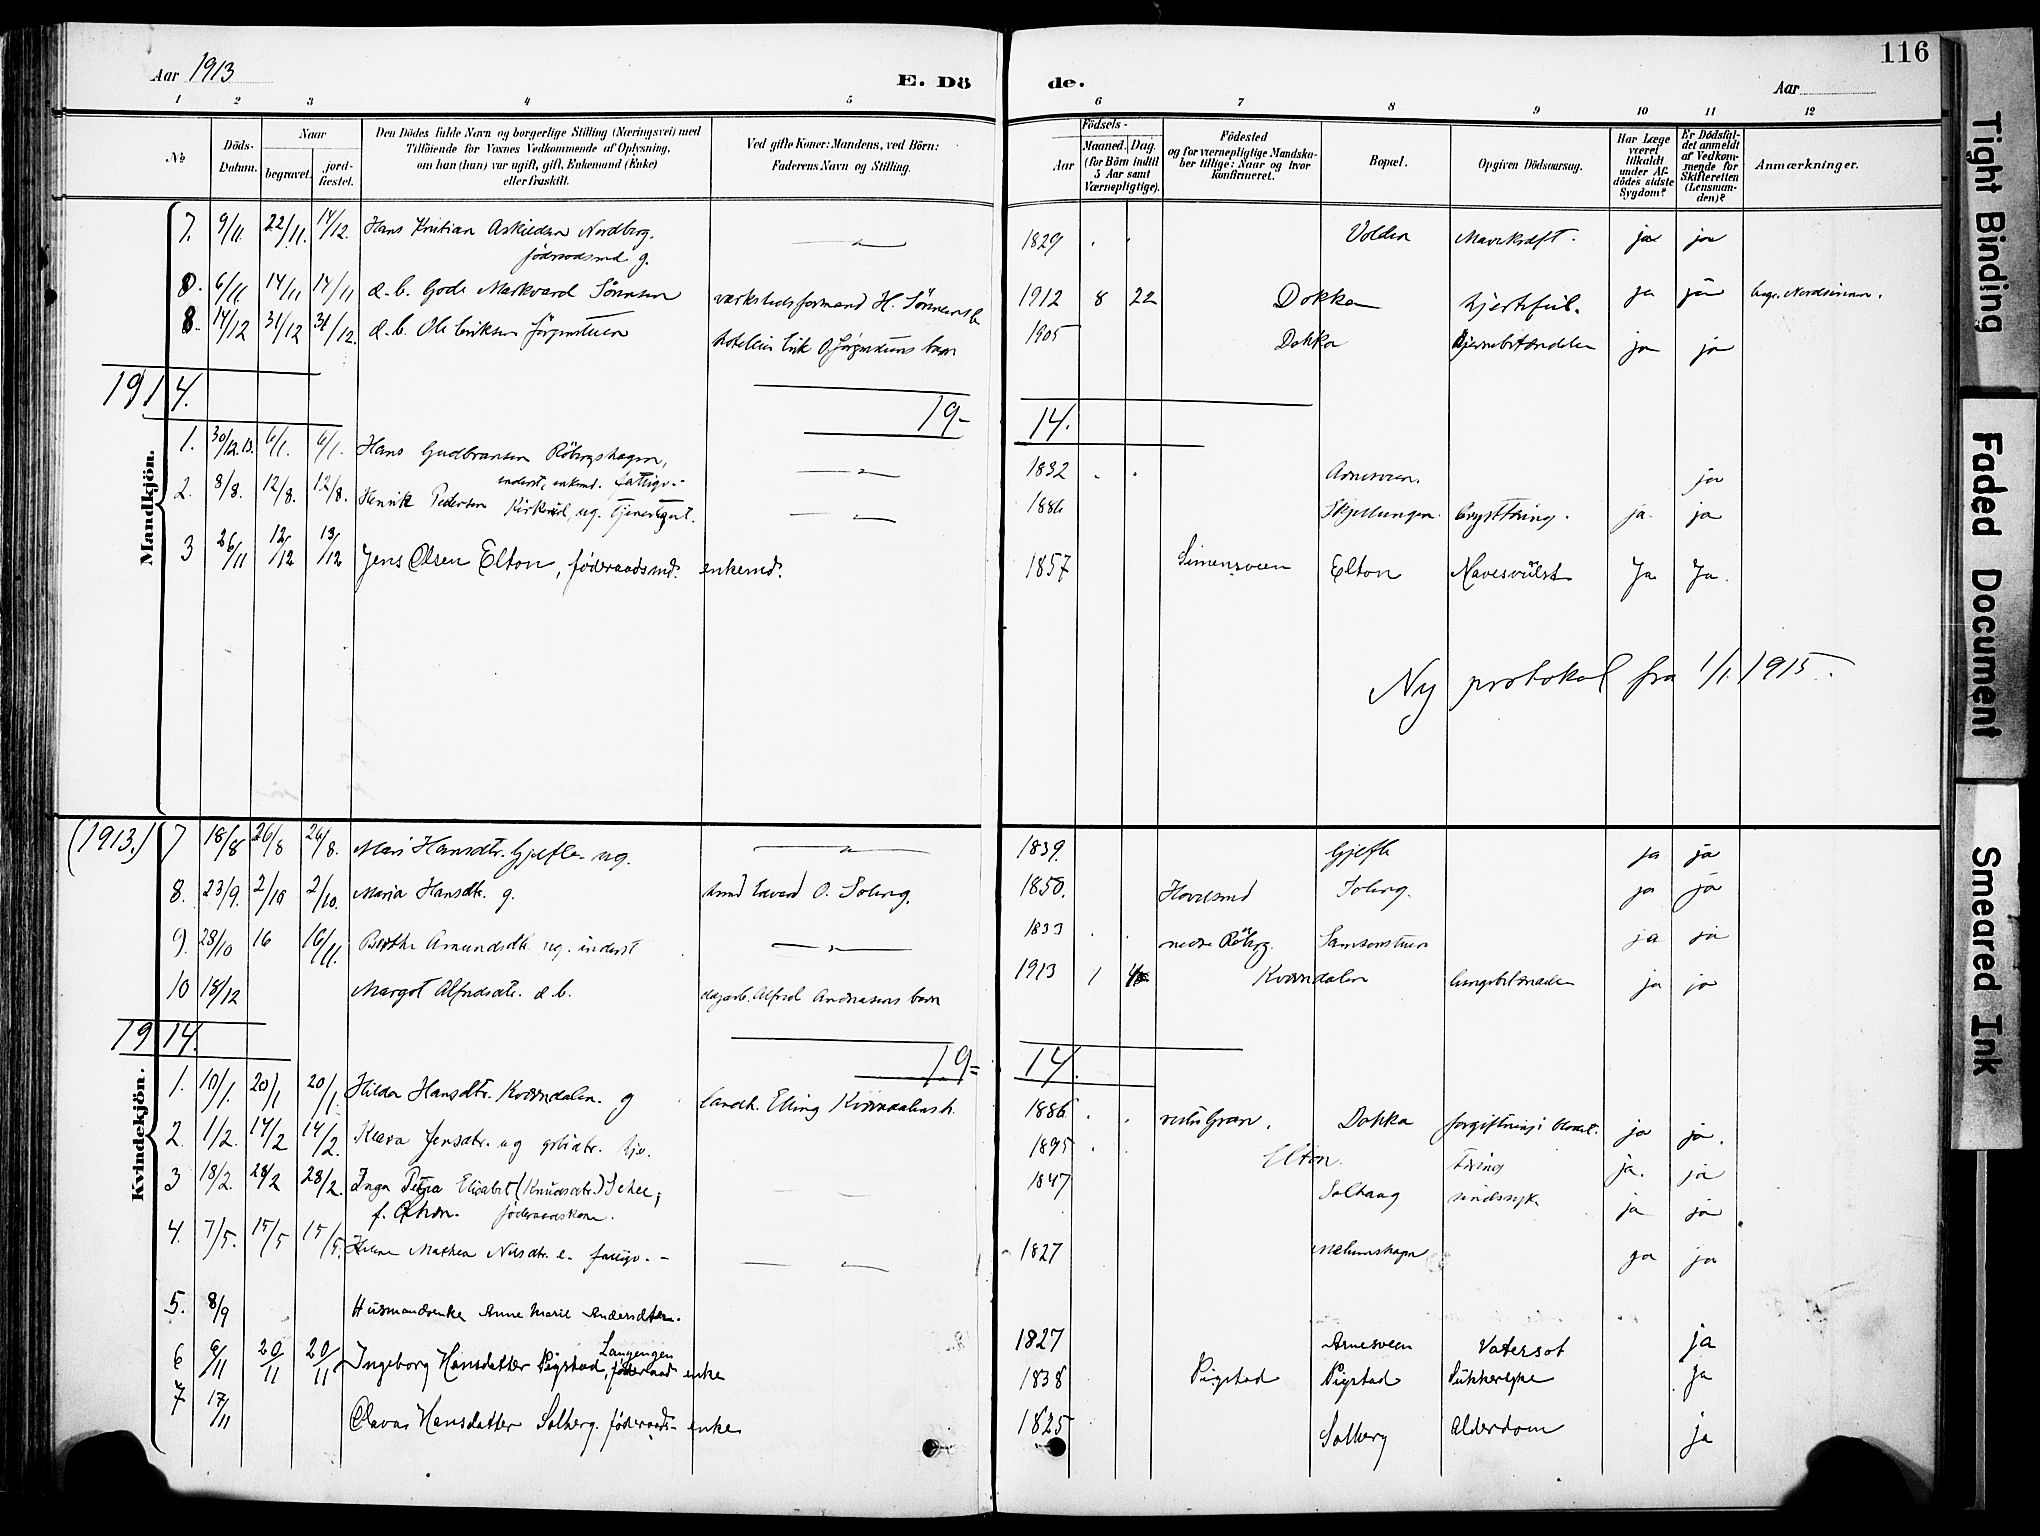 116
Aar 1913
E. Dö
de.
Aar
1 2 3 4 5 6 7 8 9 10 11 12
No.
Döds-Datum.
Naar
begravet.
jordfæstet.
Den Dödes fulde Navn og borgerlige Stilling (Næringsvei) med
Tilföiende for Voxnes Vedkommende af Oplysning,
om han (hun) var ugift, gift, Enkemand (Enke)
eller fraskilt.
Ved gifte Koner: Mandens, ved Börn:
Faderens Navn og Stilling.
Födsels-
Aar
Maaned. Dag.
(for Börn indtil
5 Aar samt
Værnepligtige).
Födested
og for værnepligtige Mandska-
ber tillige: Naar og hvor
konfirmeret.
Bopæl.
Opgiven Dödsaarsag.
Har Læge
været
tilkaldt
under Af-
dödes sidste
Sygdom?
Er Dödsfal-
det anmeldt
af Vedkom-
mende for
Skifteretten
(Lensman-
den)?
Anmærkninger.
Mandkjön.
7. 9/11 22/11. 14/12. Hans Kristian Askildsen Nordberg. föderaadsmd g. 1829 Volden Mavekræft. ja ja
8. 6/11 14/11 14/11 d. b. Gode Markvard Sörensen værkstedsformand H. Sörensens b. 1912 8 22 Dokka hjertefeil. ja ja begr. Nordsinnen.
8. 14/12 31/12 31/12. d. b. Ole Eriksen Jörgenstuen hoteleier Erik O. Jörgenstuens barn 1905 Dokka Hjernebetændelse ja ja
1914. 19- 14.
1. 30/12.13. 6/1. 6/1. Hans Gudbransen Röbergshagen, inderst, enkemd. fattigu.- 1832 Arnesveen. ja
2. 8/8. 12/8. 12/8. Henrik Pedersen ug. tjenestgut. 1886 Skjellungen. Brysttæring. ja. ja
3 26/11 12/12 13/12 Jens Olsen Elton, föderaadsmd. enkemd. 1857 Simensveen Elton Mavesvülst Ja Ja.
Ny protokol fra 1/1. 1915.
Kvindekjön.
(1913.) 7 18/8 26/8 26/8. Mari Hansdtr. Gjefle ug. 1839. Gjefle ja ja
8. 23/9. 2/10 2/10. Maria Hansdtr. g. Edvard O. Soberg. 1850. Soberg. ja ja
9. 28/10 16 16/11. Berthe Amundsdtr. ug. inderst 1833 nedre Röberg. Samsonstuen ja ja
10 18/12 Margot Alfredsdtr. d. b. dagarb. Alfred Andreasens barn 1913 1 Kværndalen lungebetændelse ja ja
1914. 19= 14.
1. 10/1. 20/1 20/1. Hilda Hansdtr. Kværndalen. g landh. Elling Kværndalens h. 1886. vestre Gran. Dokka forgiftning i blodet. ja ja.
2. 1/2. 14/2 14/2. Klara Jensdtr. ug 1895 Elton. Tæring ja. ja
3 18/2. 28/2 28/2. Inga Petra Elisabet (Knudsdtr.) föderaadskone. 1847 Solhaug sindssyk. ja ja
4. 7/5. 15/5 15/5. Helene Mathea Nilsdtr. e. fattigu. - 1827 ja ja
5. 8/9 Husmandsenke Anne Marie Andersdatter. 1827 Arnesveen Vatersot ja
6 9/11 20/11 20/11 Ingeborg Hansdatter Pigstad Langengen, föderaad enke 1838 Pigstad Pigstad Sukkersyke Ja
7 17/11 Olava Hansdatter Solberg. föderaads- enke 1825 Solberg Alderdom ja
Tight Binding
Faded Document
Smeared Ink